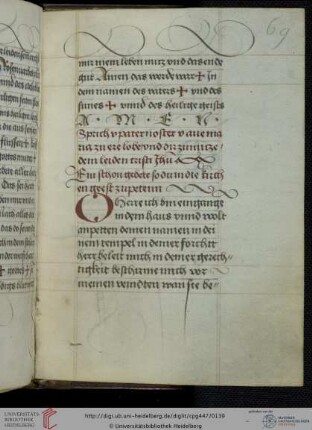 69
mir mein leben mitz vnd das ende
gut Amen das werde war + In
dem namen des vaters + vnd des
sunes + vnnd des heilige geists
A · M · E · N ·
Sprich v pater noster v aue ma
ria zu ere lobe vnd
dem leiden cristi Jhu
Ein schon gebete so du in die kirch
en geest zu petenn
O here ich bin eingangē
in dein haus vnnd wolt
anpetten deinen namen in dei
nem tempel in deiner forchtt
herr beleit mich in deiner gerech-
tigkeit beschirme mich vor
meinen veindten wan sie be-
UNIVERSITÄTS-
BIBLIOTHEK
HEIDELBERG
http://digi.ub.uni-heidelberg.de/diglit/cpg447/0139
© Universitätsbibliothek Heidelberg